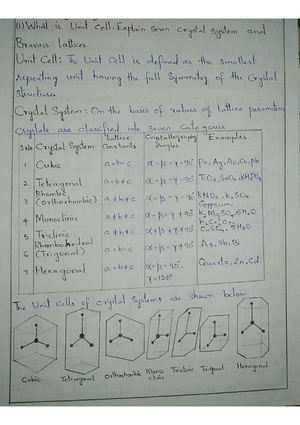 (1) What is Unit Cell. Explain Seven Crystal System and
Bravais lattices.
Unit Cell: The Unit Cell is defined as the smallest
repeating unit having the full Symmetry of the Crystal
Structure.
Crystal System: On the basis of values of lattice parameters
Crystals are classified into Seven Categories
S.No Crystal System Lattice Constants Crystallography Angles Examples
1 Cubic a=b=c α=β=γ=90° Po, Ag, Au, Cu, Pb
2 Tetragonal a=b≠c α=β=γ=90° TiO2, SnO2, KH2PO4
3 Rhombic (Orthorhombic) a≠b≠c α=β=γ=90° KNO3, K2SO4
4 Monoclinic a≠b≠c Gypsum,
5 Triclinic a≠b≠c
6 Rhombohedral (Trigonal) a=b=c As, Sb, Bi
7 Hexagonal a=b≠c α=β=90° γ=120° Quartz, Zn, Cd
The Unit Cells of Crystal Systems are Shown below
Cubic Tetragonal Orthorhombic Mono clinic Triclinic Trigonal Hexagonal